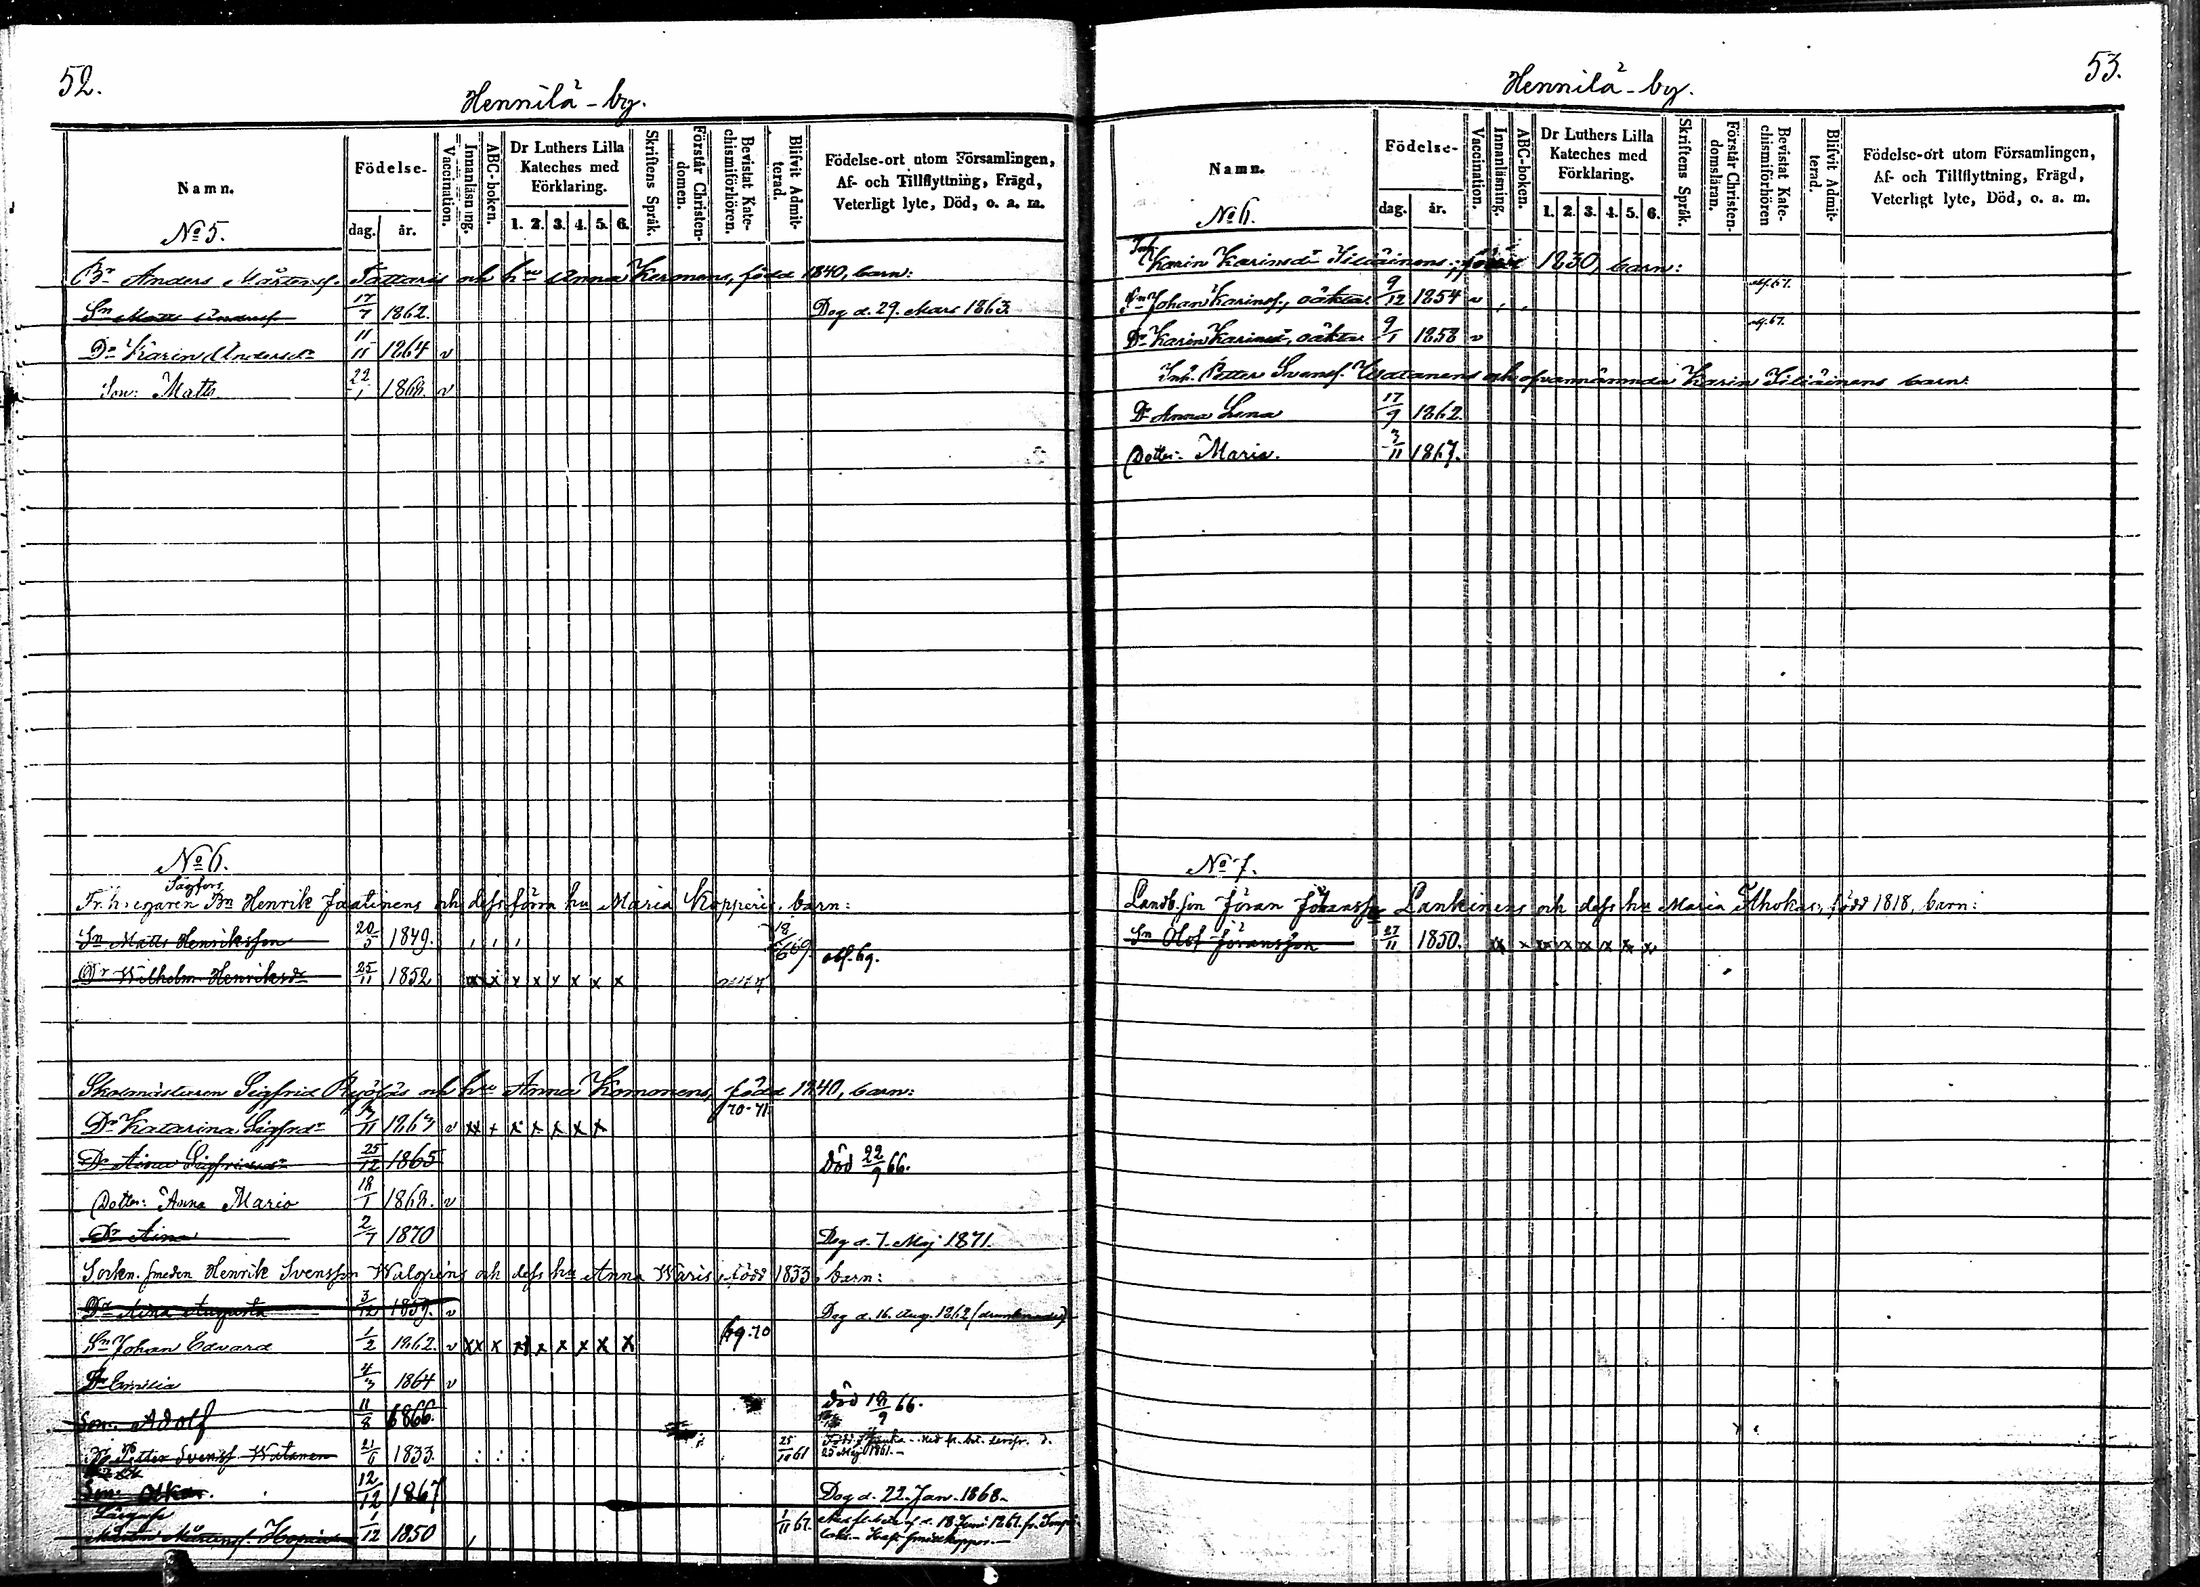 52.
Hennilä-by.
Namn.
Födelse-
dag.
år.
Vaccination.
Innanläsning.
ABC-boken.
Dr Luthers Lilla
Kateches med
Förklaring.
1. 2. 3. 4. 5. 6.
Skriftens Språk.
Förstår Christen-
domen.
Bevistat Kate-
chismiförhören.
Blifvit Admit-
terad.
Födelse-ort utom Församlingen,
Af- och Tillflyttning, Frägd,
Veterligt lyte, Död, o. a. m.
No 5.
Bn Anders Mårtensf. Tattaris och hu Anna Keronens, född 1840, barn:
Sn Matts Andersf 17/7 1862. Dog d. 29. Mars 1863.
Dr Karin Andersdr 11/11 1864 v
Son: Matts 22/1 1868. v
No 6.
Fr. h. egaren Bn Henrik Jaatinens och dess förra hu Maria Kopperis, barn:
Sn Matts Henriksson 20/5 1849. 18/6 69. abf. 69.
Dr Wilhelm. Henriksdr 25/11 1852. x x x x x x x x
Skolmästaren Sigfrid och hu Anna Komonens, född 1840, barn:
70-71
Dr Katarina Sigfrdr 3/11 1863 v xx + x x x x x
Dr Aina Sigfridsdr 25/12 1865 Död 22/9 66.
Dotter: Anna Maria 18/1 1868. v
Dr Aina 2/7 1870 Dog d. 7. Maj 1871.
Sockn. smeden Henrik Svensson Walgrens och dess hu Anna Waris, född 1833, barn:
Dr Aina Augusta 3/12 1859. v Dog d. 16. Aug. 1862
Sn Johan Edvard 1/2 1862. v xx x x x x x x x 69.70
Dr Emilia 4/3 1864 v
Son: Adolf 11/8 1866. Död 18/9 66.
Petter Svensf Watanen 21/6 1833. 25/10 61
Son: Oskar. 12/12 1867 Dog d. 22. Jan. 1868.
Mårtensf. 1/12 1850 1/11 67.
53.
Hennilä-by.
Namn.
Födelse-
dag.
år.
Vaccination.
Innanläsning.
ABC-boken.
Dr Luthers Lilla
Kateches med
Förklaring.
1. 2. 3. 4. 5. 6.
Skriftens Språk.
Förstår Christen-
domsläran.
Bevistat Kate-
chismiförhören
Blifvit Admit-
terad.
Födelse-ort utom Församlingen,
Af- och Tillflyttning, Frägd,
Veterligt lyte, Död, o. a. m.
No 6.
Karin Karinsdr Siliäinens, född 1830, barn:
Sn Johan Karinsf., oäkta 9/12 1854 v abf. 67.
Dr Karin Karinsd, oäkta 9/1 1858 v abf. 67.
Inh. Petter Svensf. Watanens och ofvannämnda Karin Siliäinens barn:
Dr Anna Lena 17/9 1862.
Dotter: Maria. 3/11 1867.
No 7.
Landb. son Jöran Jöransson Lankinens och dess hu Maria Ihokas, född 1818, barn:
Sn Olof Jöransson 27/11 1850. xx x xx x x x x x